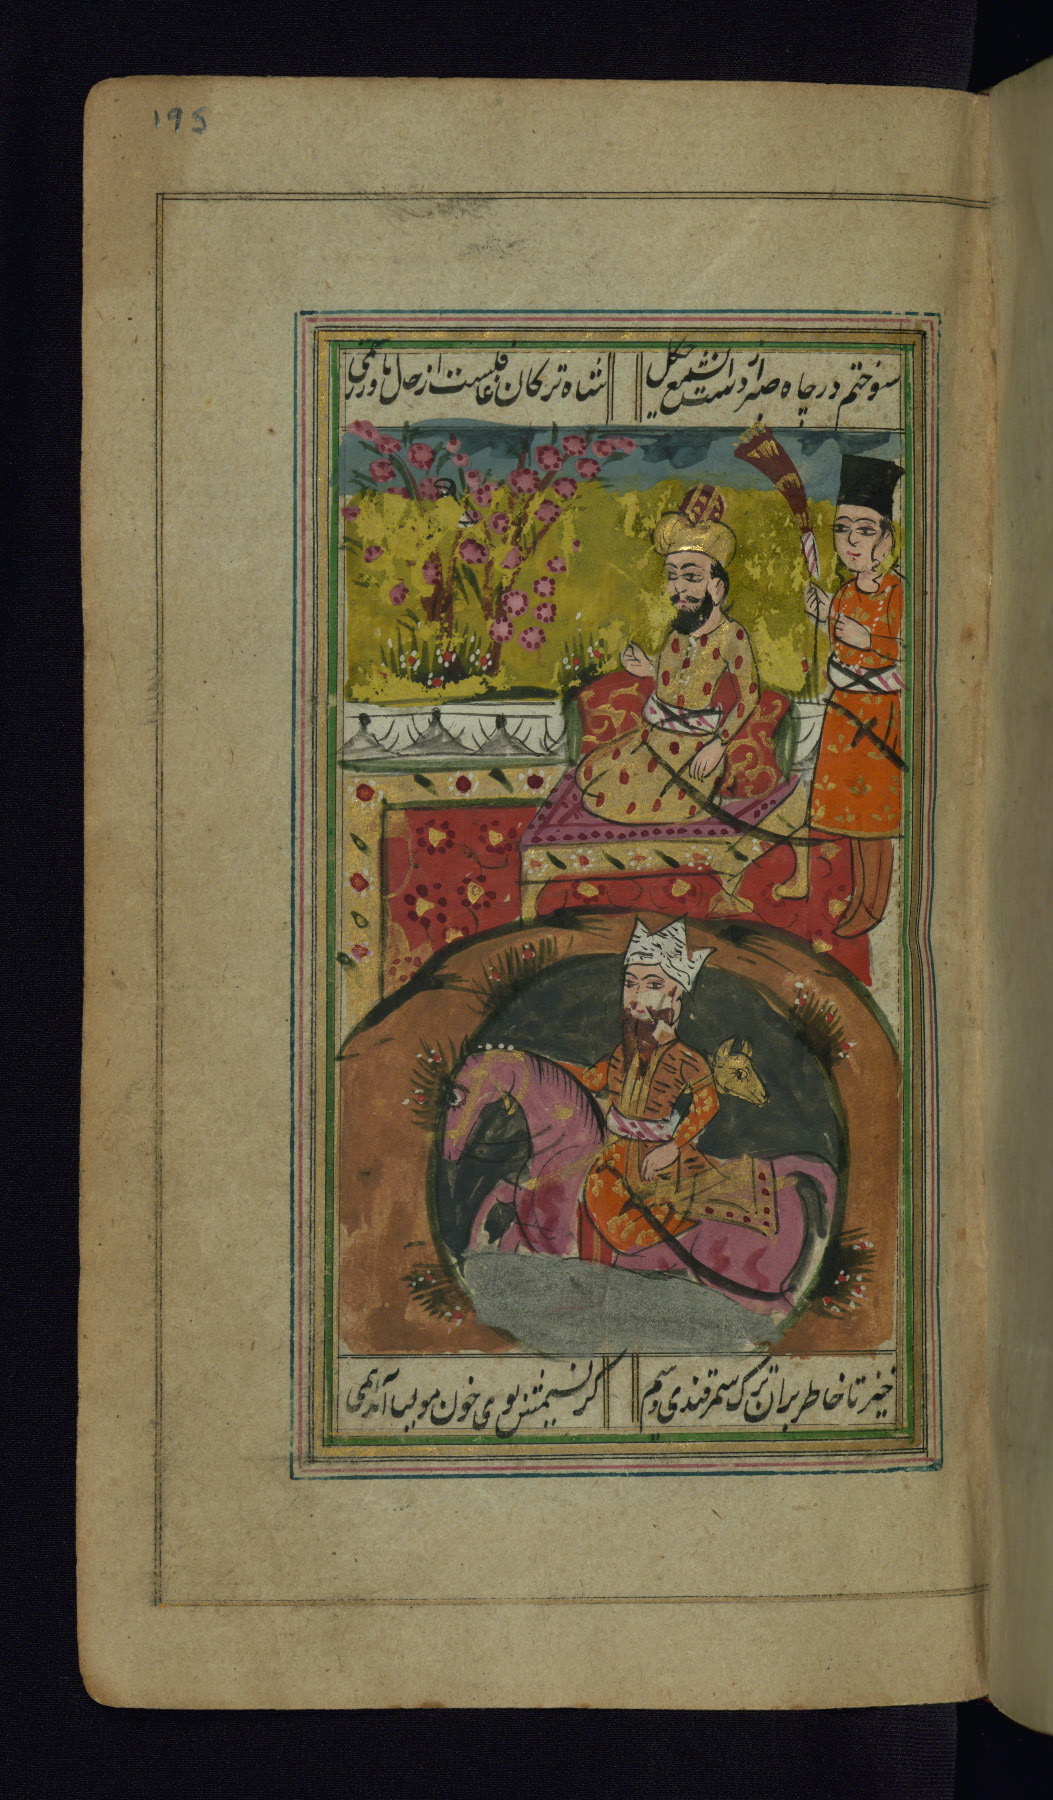 195
سوختم در چاه صبر از دست آن شمع چگل
شاه ترکان غافلست از حال ما کو رستمی
خیز تا خاطر بران ترک سمرقندی دهیم
کز نسیمش بوی خون مولیا آید همی